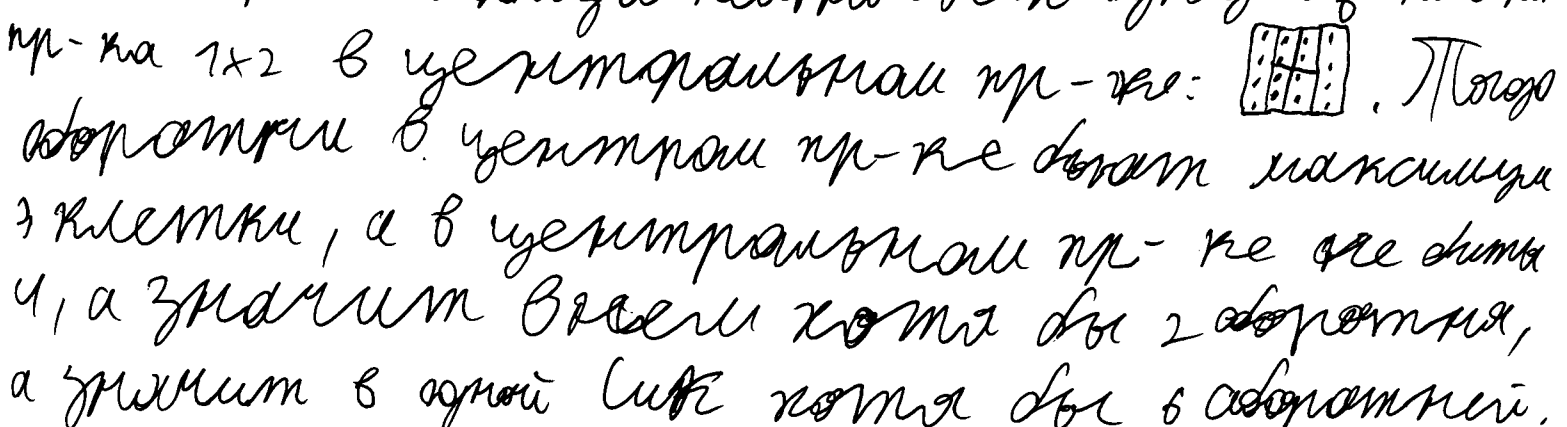 пр-ка 1×2 в центральном пр-ке: . Тогда
оборотни в центром пр-ке бьют максимум
3 клетки, а в центральном пр-ке не биты
4, а значит всем хотя бы 2 оборотня,
а значит в одной хотя бы 6 оборотней.